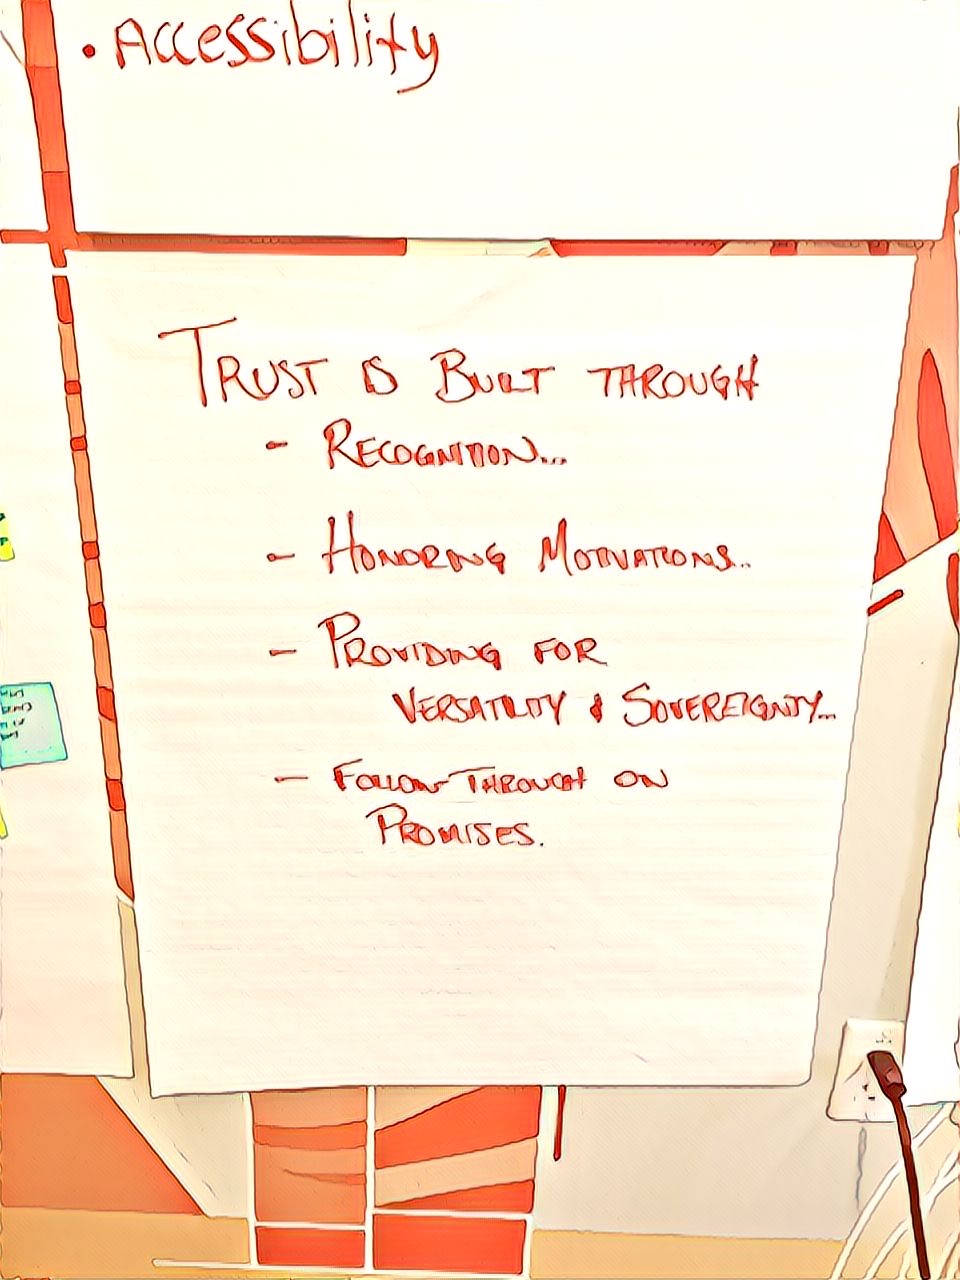 • Accessibility
TRUST IS BUILT THROUGH
- RECOGNITION...
- HONORING MOTIVATIONS..
- PROVIDING FOR
VERSATILITY & SOVEREIGNTY...
- FOLLOW-THROUGH ON
PROMISES.